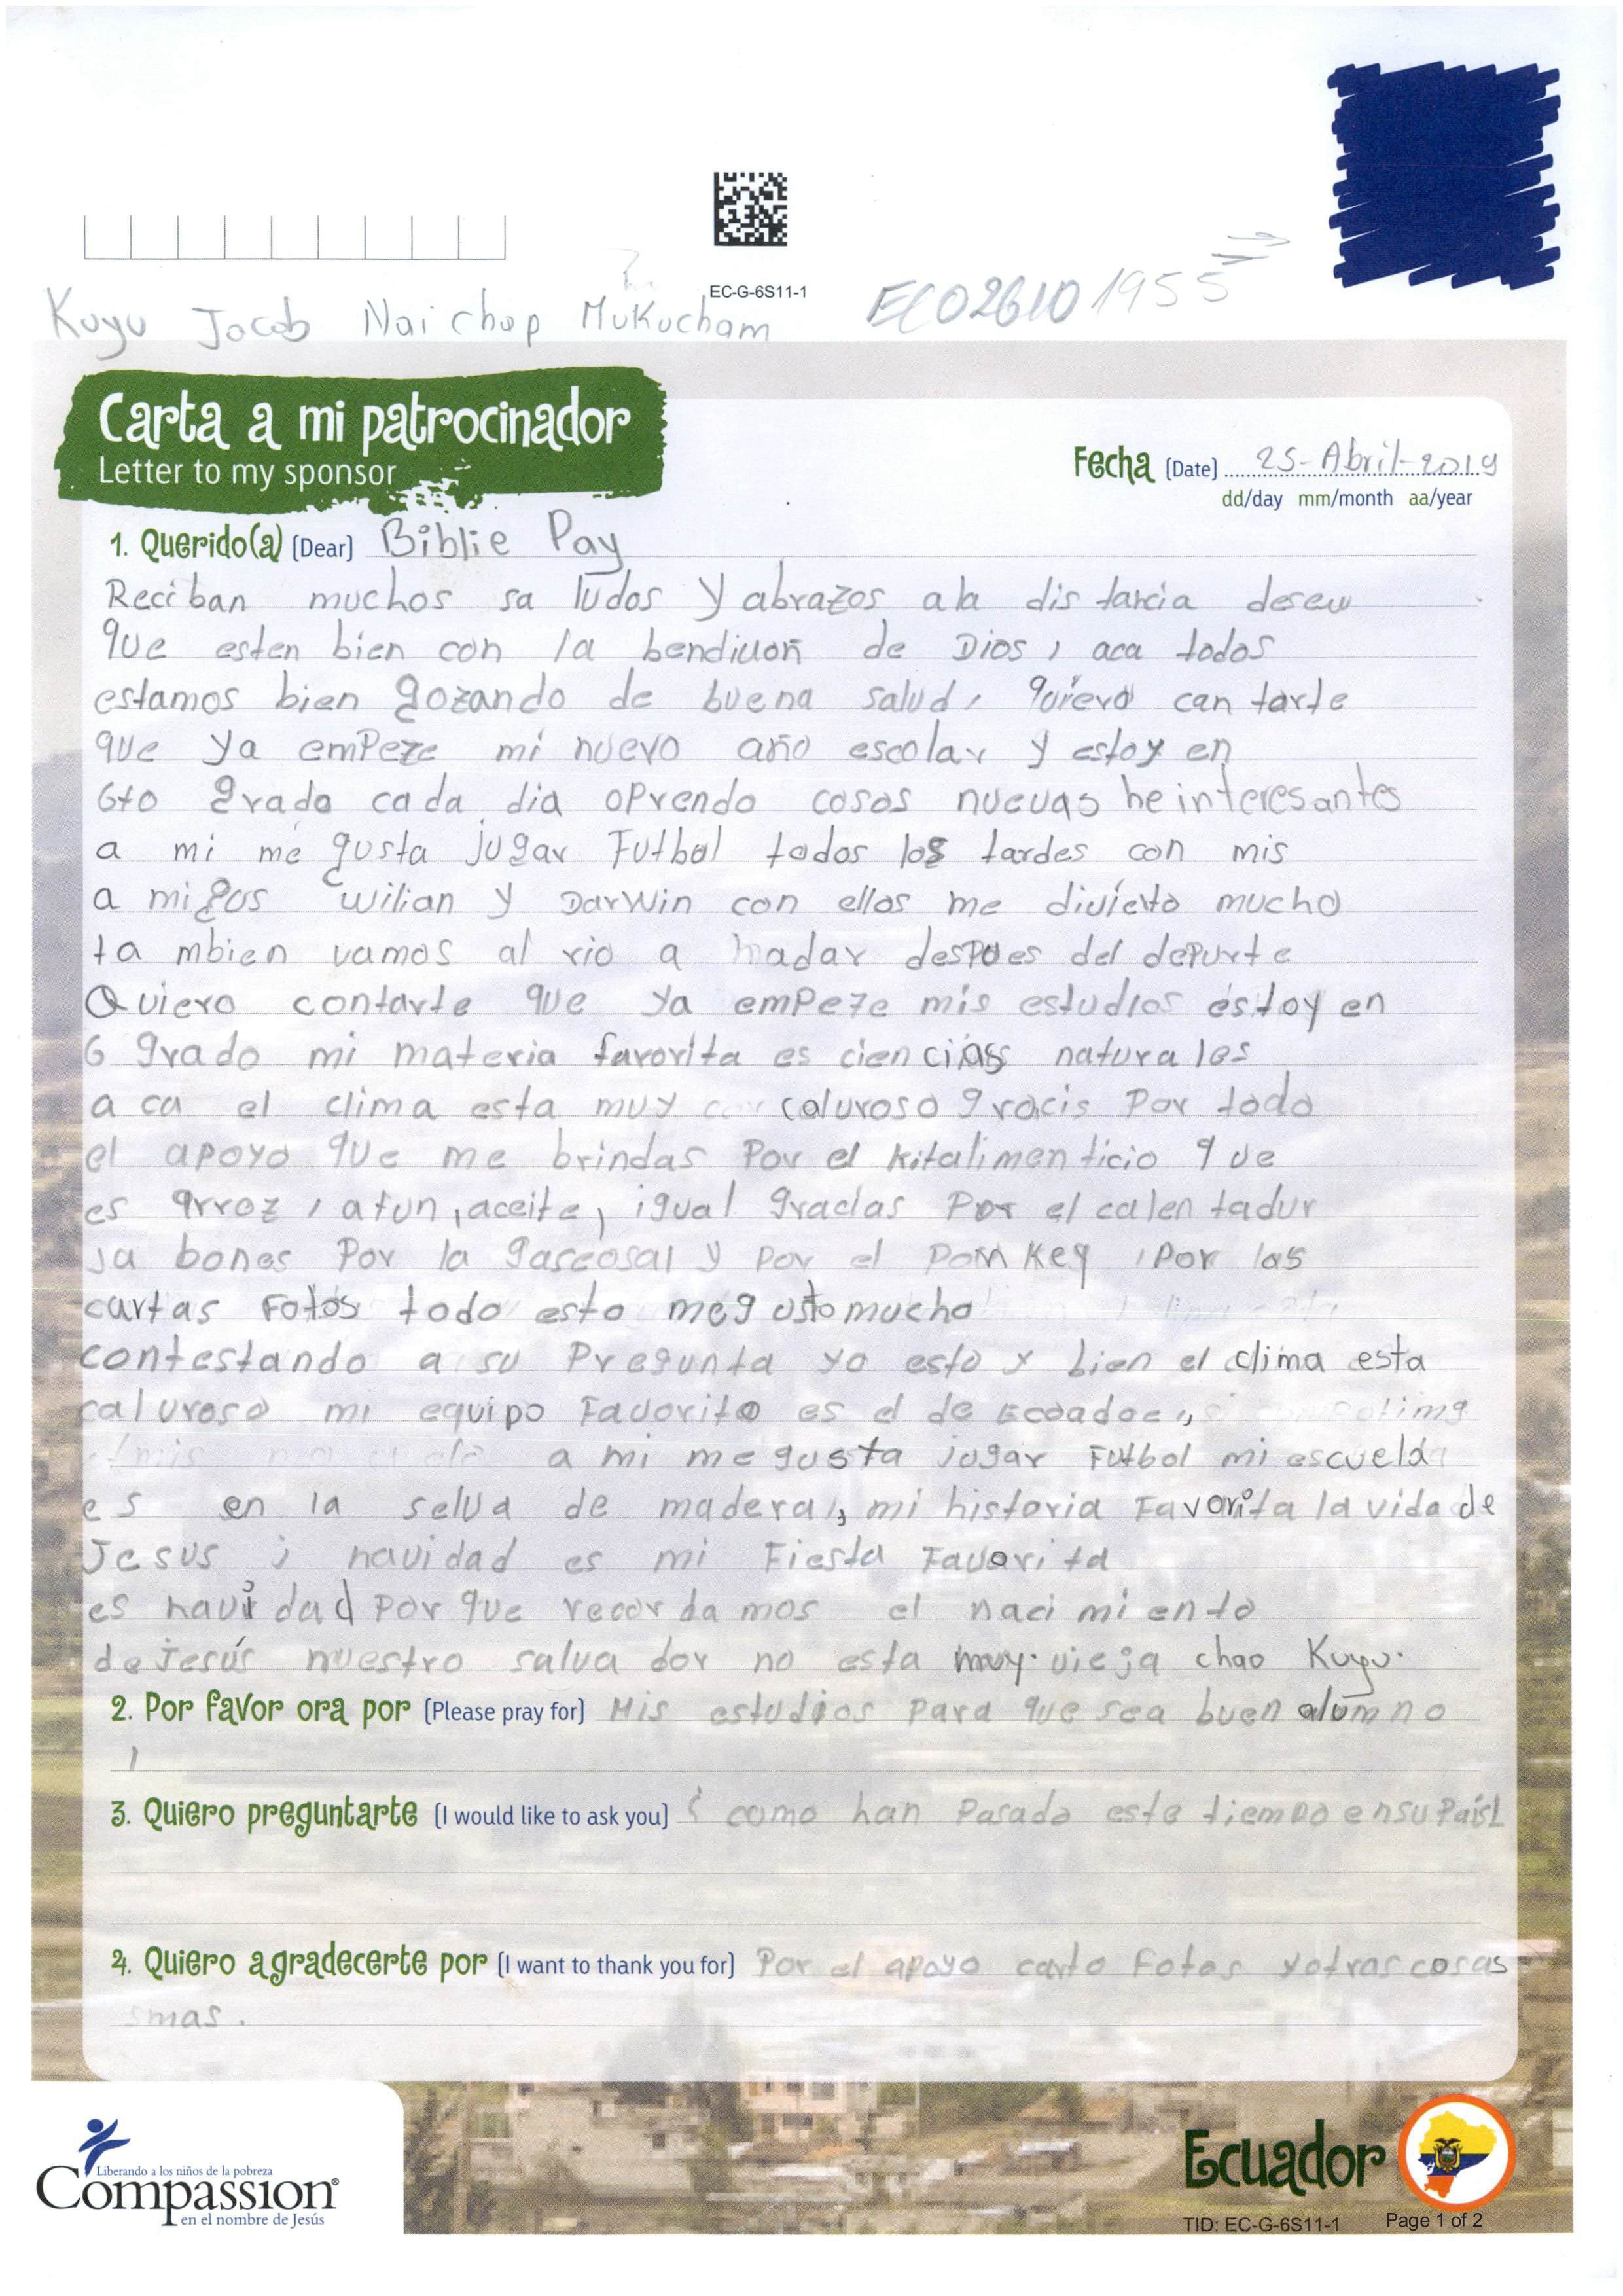 EC-G-6S11-1
Kuyu Jacob Naichap Mukucham EC02610 1955
Carta a mi patrocinador
Letter to my sponsor
Fecha (Date) 25-Abril-2019
dd/day mm/month aa/year
1. Querido(a) (Dear) Biblie Pay
Reciban muchos sa ludos y abrazos ala dis tancia deseo
que esten bien con la bendición de Dios, aca todos
estamos bien gozando de buena salud, quiero can tarte
que ya empeze mi nuevo año escolar y estoy en
6to grado cada dia oprendo cosas nuevas he interesantes
a mi me gusta jugar Futbol todos los tardes con mis
a migos wilian y Darwin con ellos me divierto mucho
ta mbien vamos al rio a nadar despues del deporte
Quiero contarte que ya empeze mis estudios estoy en
6 grado mi materia favorita es cien cias natura les
a ca el clima esta muy caluroso gracis Por todo
el apoyo que me brindas Por el kitalimen ticio que
es arroz, atun, aceite, igual gracias Por el calen tadur
ja bones Por la gaseosa y por el Pom key, Por las
cartas Fotos todo esto meg usto mucho
contestando a su Pregunta yo esto y bien el clima esta
caluroso mi equipo Favorito es el de
a mi me gusta jugar Futbol mi escuela
es en la selva de madera, mi historia Favorita la vida de
Jesus; navidad es mi Fiesta Favorita
es navi dad Por que recor da mos el naci mi ento
de Jesús nuestro salva dor no esta muy vieja chao Kuyu.
2. Por favor ora por (Please pray for) Mis estudios Para que sea buen alumno
3. Quiero preguntarte (I would like to ask you) ¿ como han Pasado este tiempo ensu País?
4. Quiero agradecerte por (I want to thank you for) Por el apoyo carto Fotos y otras cosas
smas.
Liberando a los niños de la pobreza
Compassion®
en el nombre de Jesús
Ecuador
TID: EC-G-6S11-1 Page 1 of 2